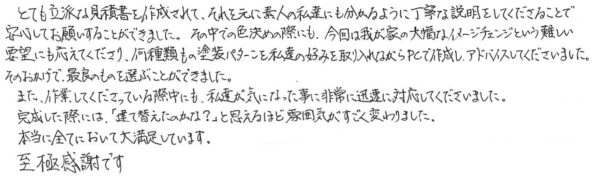 とても立派な見積書を作成されて、それを元に素人の私達にも分かるように丁寧な説明をしてくださることで
安心してお願いすることができました。その中での色決めの際にも、今回は我が家の大幅なイメージチェンジという難しい
要望にも応えてくださり、何種類もの塗装パターンを私達の好みを取り入れながらPCで作成し、アドバイスしてくださいました。
そのおかげで、最良のものを選ぶことができました。
また、作業してくださっている際中にも、私達が気になった事に非常に迅速に対応してくださいました。
完成した際には、「建て替えたのかな?」と思えるほど雰囲気がすごく変わりました。
本当に全てにおいて大満足しています。
至極感謝です